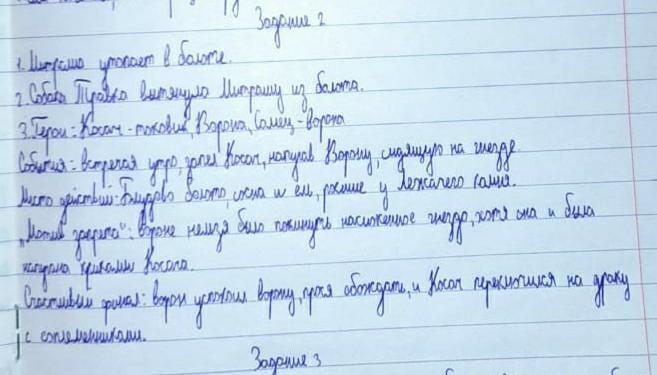 Задание 2
1. Митраша утопает в болоте.
2. Собака Травка вытянула Митрашу из болота.
3. Герои = Косач-токовик, Ворона, Самец-ворона
События = встречая утро, запел Косач, напугав Ворону, сидящую на гнезде.
Место действий: Блудово болото, сосна и ель, росшие у Лежачего камня.
"Мотив запрета": вороне нельзя было покинуть насиженное гнездо, хотя она и была
напугана криками Косача.
Счастливый финал: ворон успокоил ворону, прося обождать, и Косач переключился на драку
с соплеменниками.
Задание 3